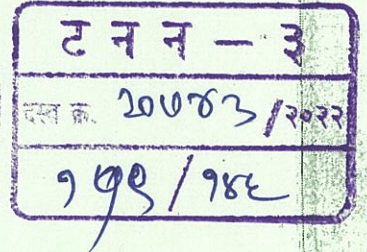 ट न न - ३
दस्त क्र. २०७४३/२०२२
१५९/१४६